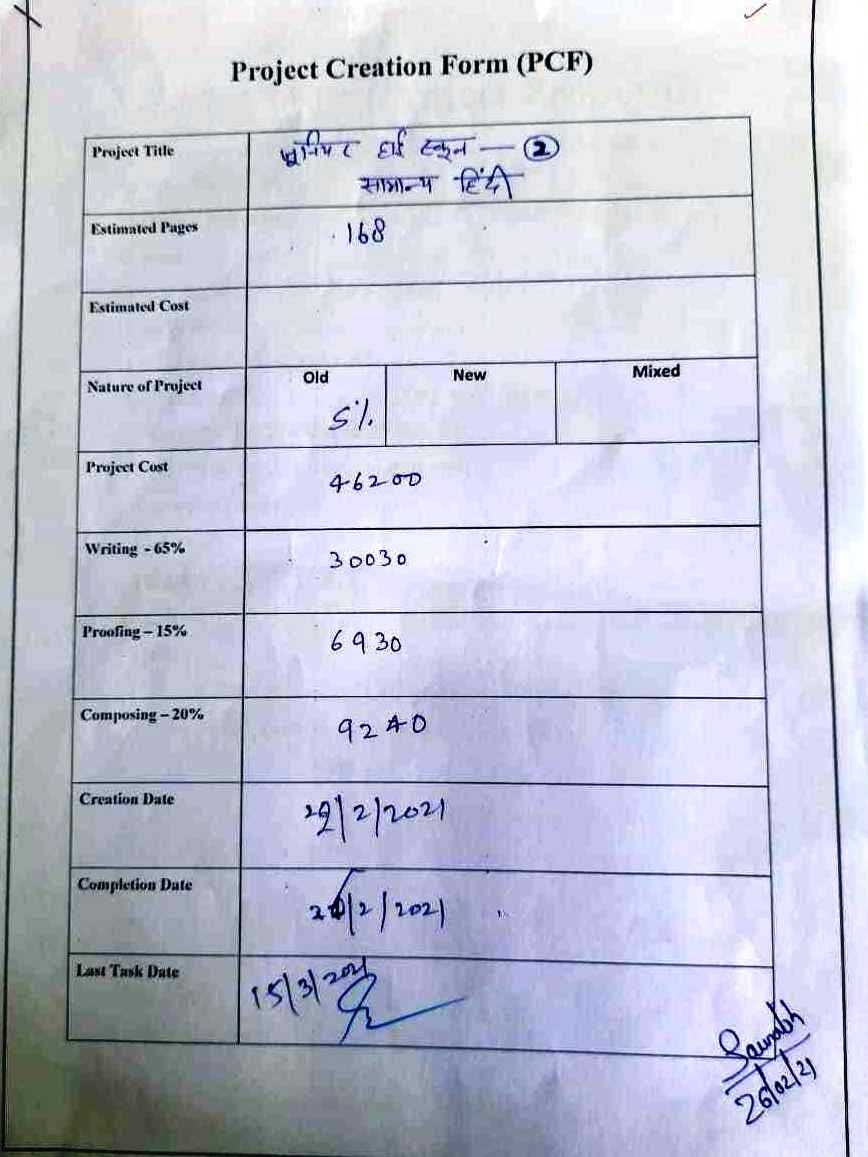 Project Creation Form (PCF)
Project Title
जूनियर हाई स्कूल — 2
सामान्य हिंदी
Estimated Pages
168
Estimated Cost
Nature of Project
Old
New
Mixed
5%
Project Cost
46200
Writing - 65%
30030
Proofing – 15%
6930
Composing – 20%
9240
Creation Date
/2/2021
Completion Date
/2/2021
Last Task Date
15/3/2021
Saurabh
26/02/21